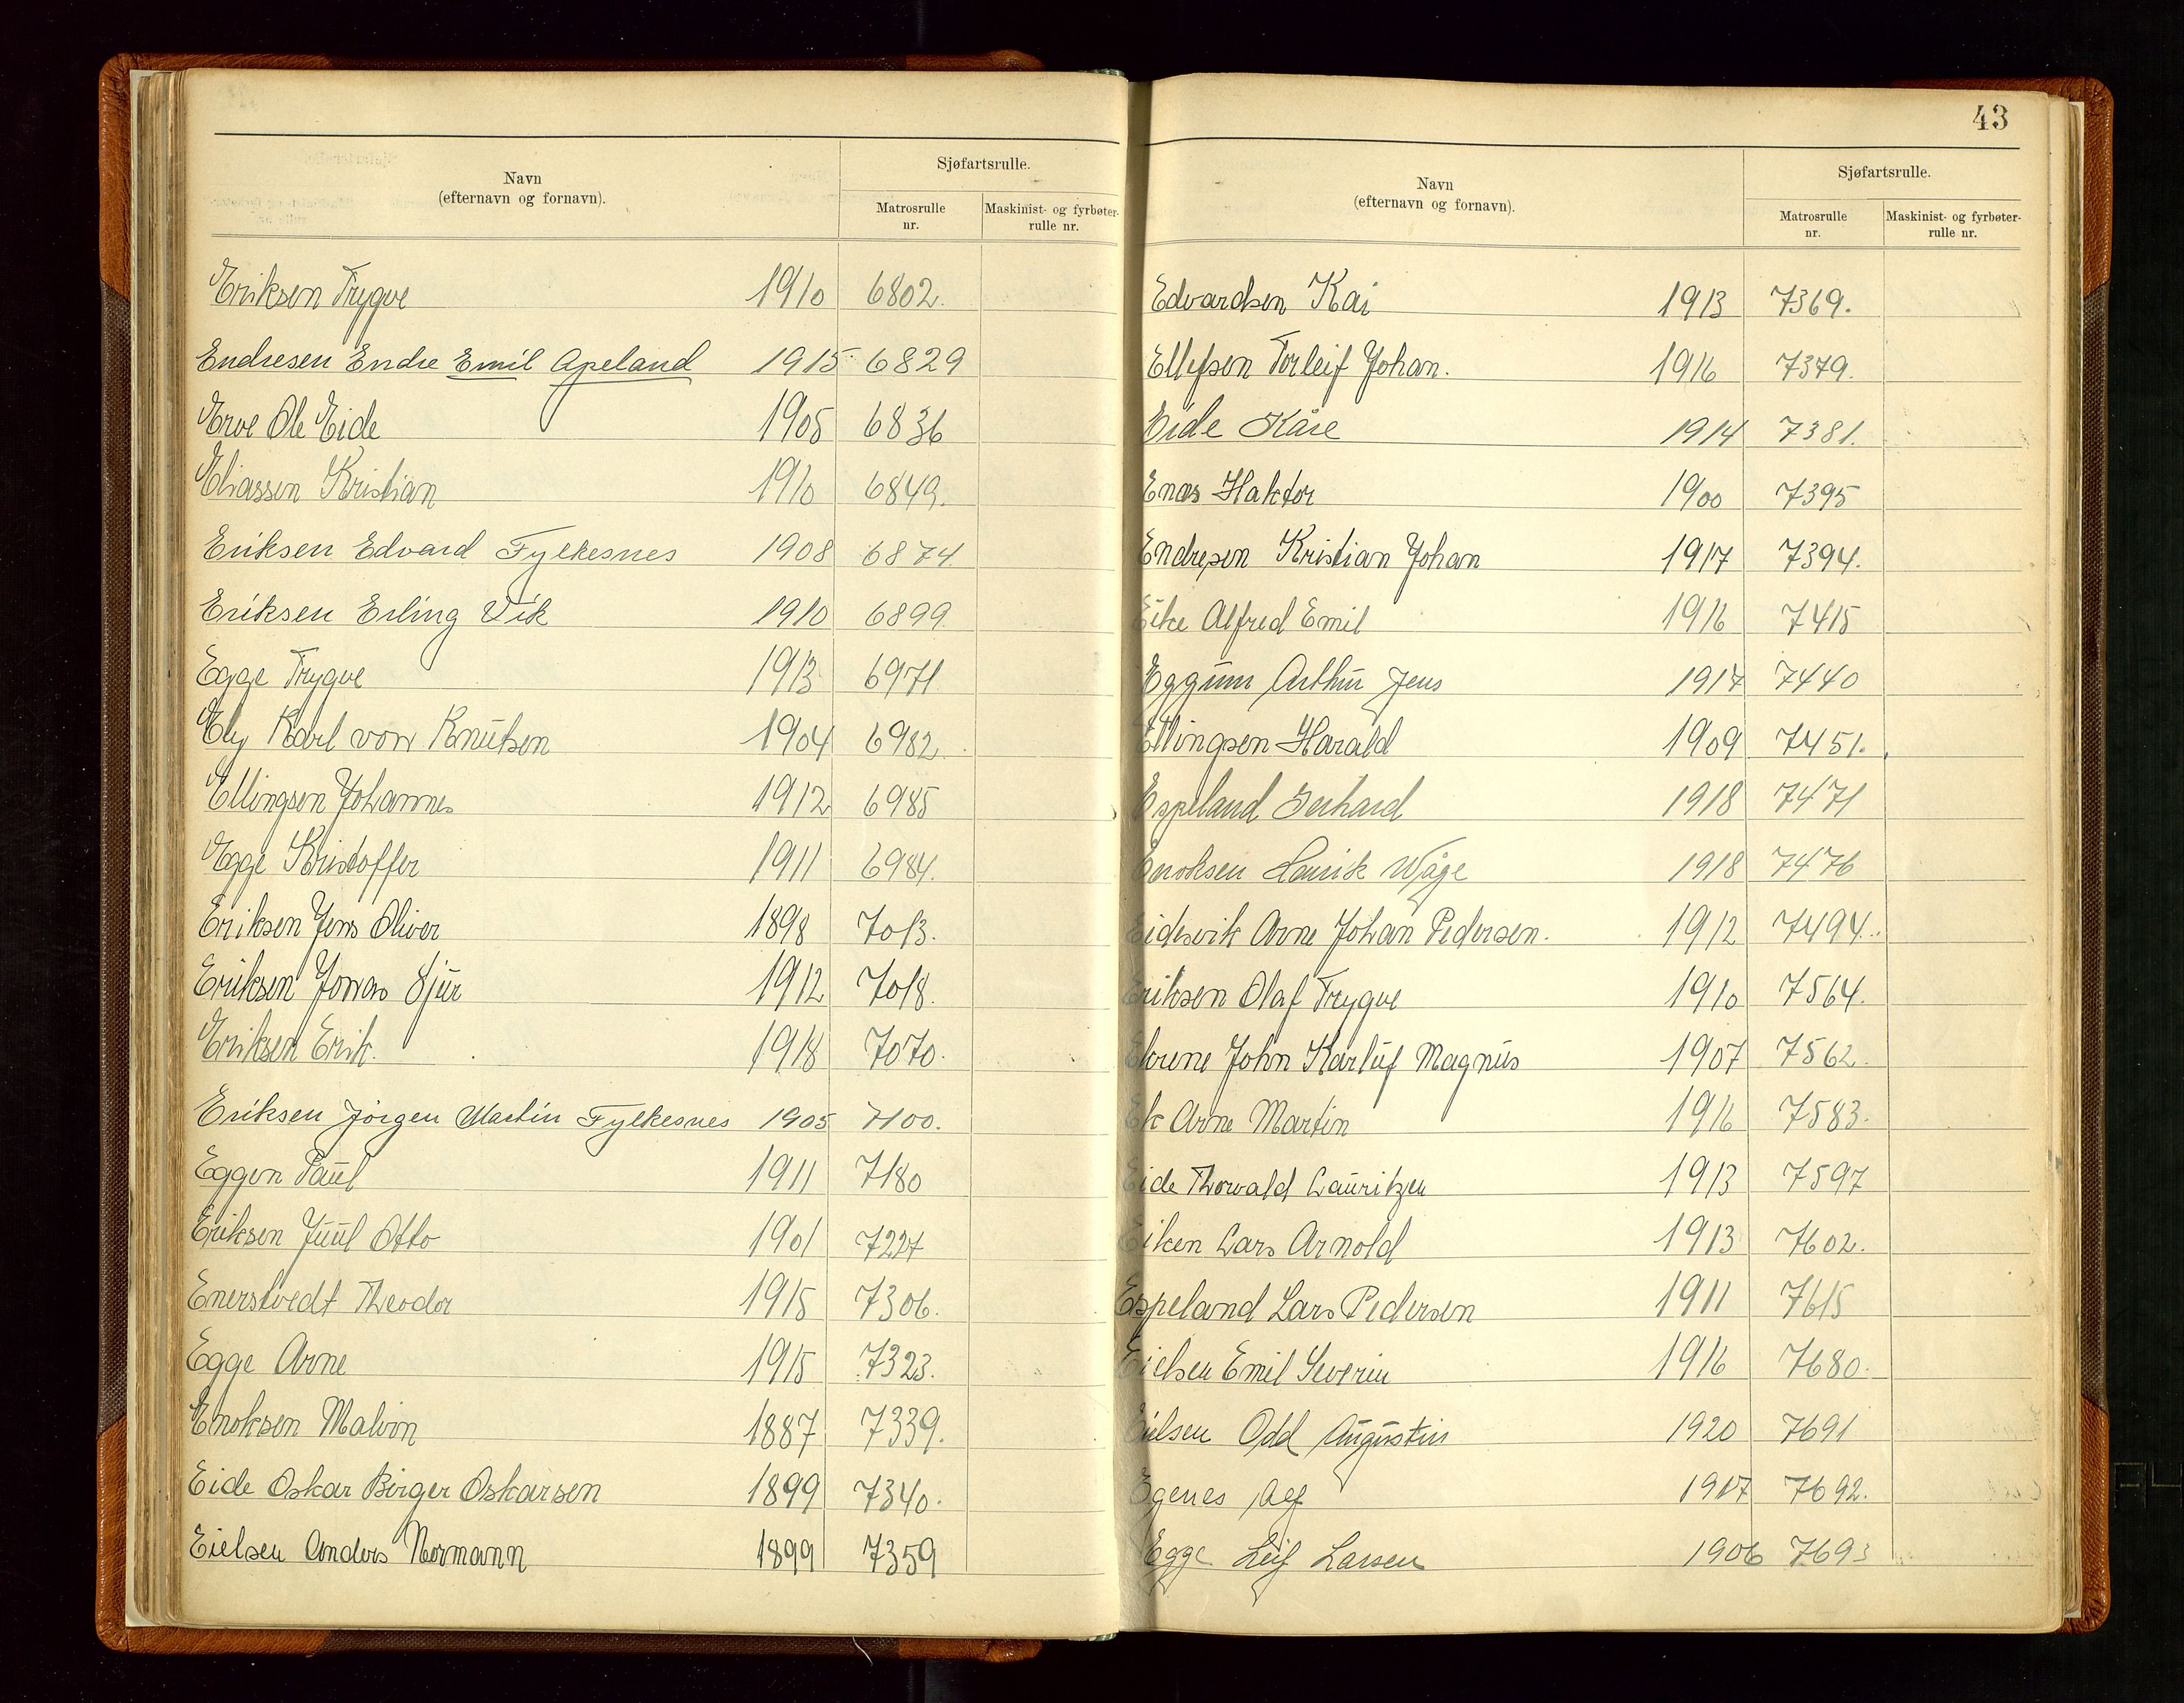 43
Navn
(efternavn og fornavn).
Sjøfartsrulle.
Matrosrulle
nr.
Maskinist- og fyrbøter-
rulle nr.
Eriksen Trygve 1910 6802.
Endresen Endre Emil Apeland 1915 6829
Erve Ole Eide 1905 6836
Eliassen Kristian 1910 6849.
Eriksen Edvard Fylkesnes 1908 6874
Eriksen Erling Vik 1910 6899
Egge Trygve 1913 6971
Ely Karl von Knutsen 1904 6982
Ellingsen Johannes 1912 6985
Egge Kristoffer 1911 6984.
Eriksen Jens Oliver 1898 7013.
Eriksen Jonas Sjur 1912 7018.
Eriksen Erik. 1918 7070.
Eriksen Jörgen Martin Fylkesnes 1905 7100.
Eggen Paul 1911 7180
Eriksen Juul Otto 1901 7227
Enerstvedt Theodor 1915 7306.
Egge Arne 1915 7323.
Enoksen Malvin 1887 7339.
Eide Oskar Birger Oskarsen 1899 7340.
Eielsen Anders Normann 1899 7359
Navn
(efternavn og fornavn).
Sjøfartsrulle.
Matrosrulle
nr.
Maskinist- og fyrbøter-
rulle nr.
Edvardsen Kai 1913 7369.
Ellefsen Torleif Johan. 1916 7379.
Eide Kåre 1914 7381.
Enæs Haktor 1900 7395
Endresen Kristian Johan 1917 7394.
Eike Alfred Emil 1916 7415
Eggum Arthur Jens 1917 7440
Ellingsen Harald 1909 7451.
Espeland Gerhard 1918 7471
Enoksen Henrik Wåge 1918 7476
Eidesvik Arne Johan Pedersen. 1912 7494.
Eriksen Olaf Trygve 1910 7564.
Ekrene John Karluf Magnus 1907 7562.
Ek Arne Martin 1916 7583.
Eide Thorvald Lauritzen 1913 7597
Eiken Lars Arnold 1913 7602.
Espeland Lars Pedersen 1911 7615
Eielsen Emil Severin 1916 7680.
Eielsen Odd Augustin 1920 7691
Egenes Alf 1917 7692.
Egge Leif Larsen 1906 7693